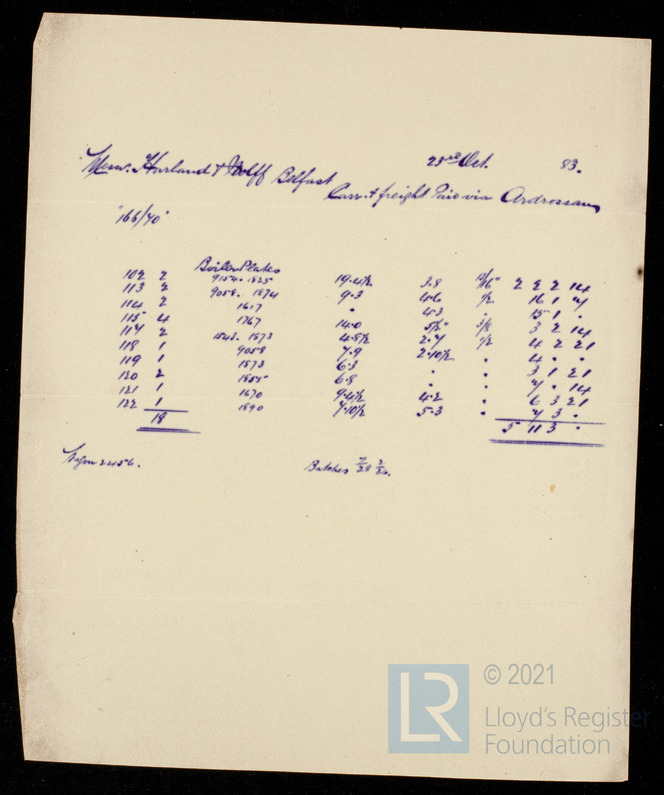 23rd Oct. 83.
Messrs. Harland & Wolff Belfast
Carr. & freight Paid via Ardrossan
"166/70"
Boiler Plates
102 2 9154. 1825 19.4½ 3.8 15/16" 2 2 2 14
113 2 9058. 1874 9.3 4.6 1/2 16 1 7
114 2 1617 " 4.3 " 15 1 "
115 4 1767 14.0 5/8 3 2 14
117 2 1543. 1573 4.8½ 2.7 1/2 4 2 21
118 1 9058 7.9 2.10½ " 4 " "
119 1 1573 6.3 " " 3 1 21
120 2 6.8 " " 7 " 14
121 1 1670 9.4½ 4.2 " 6 3 21
122 1 1890 7.10½ 5.3 " 7 3 "
18 5 11 3 "
2456. Batches
LR © 2021
Lloyd's Register
Foundation